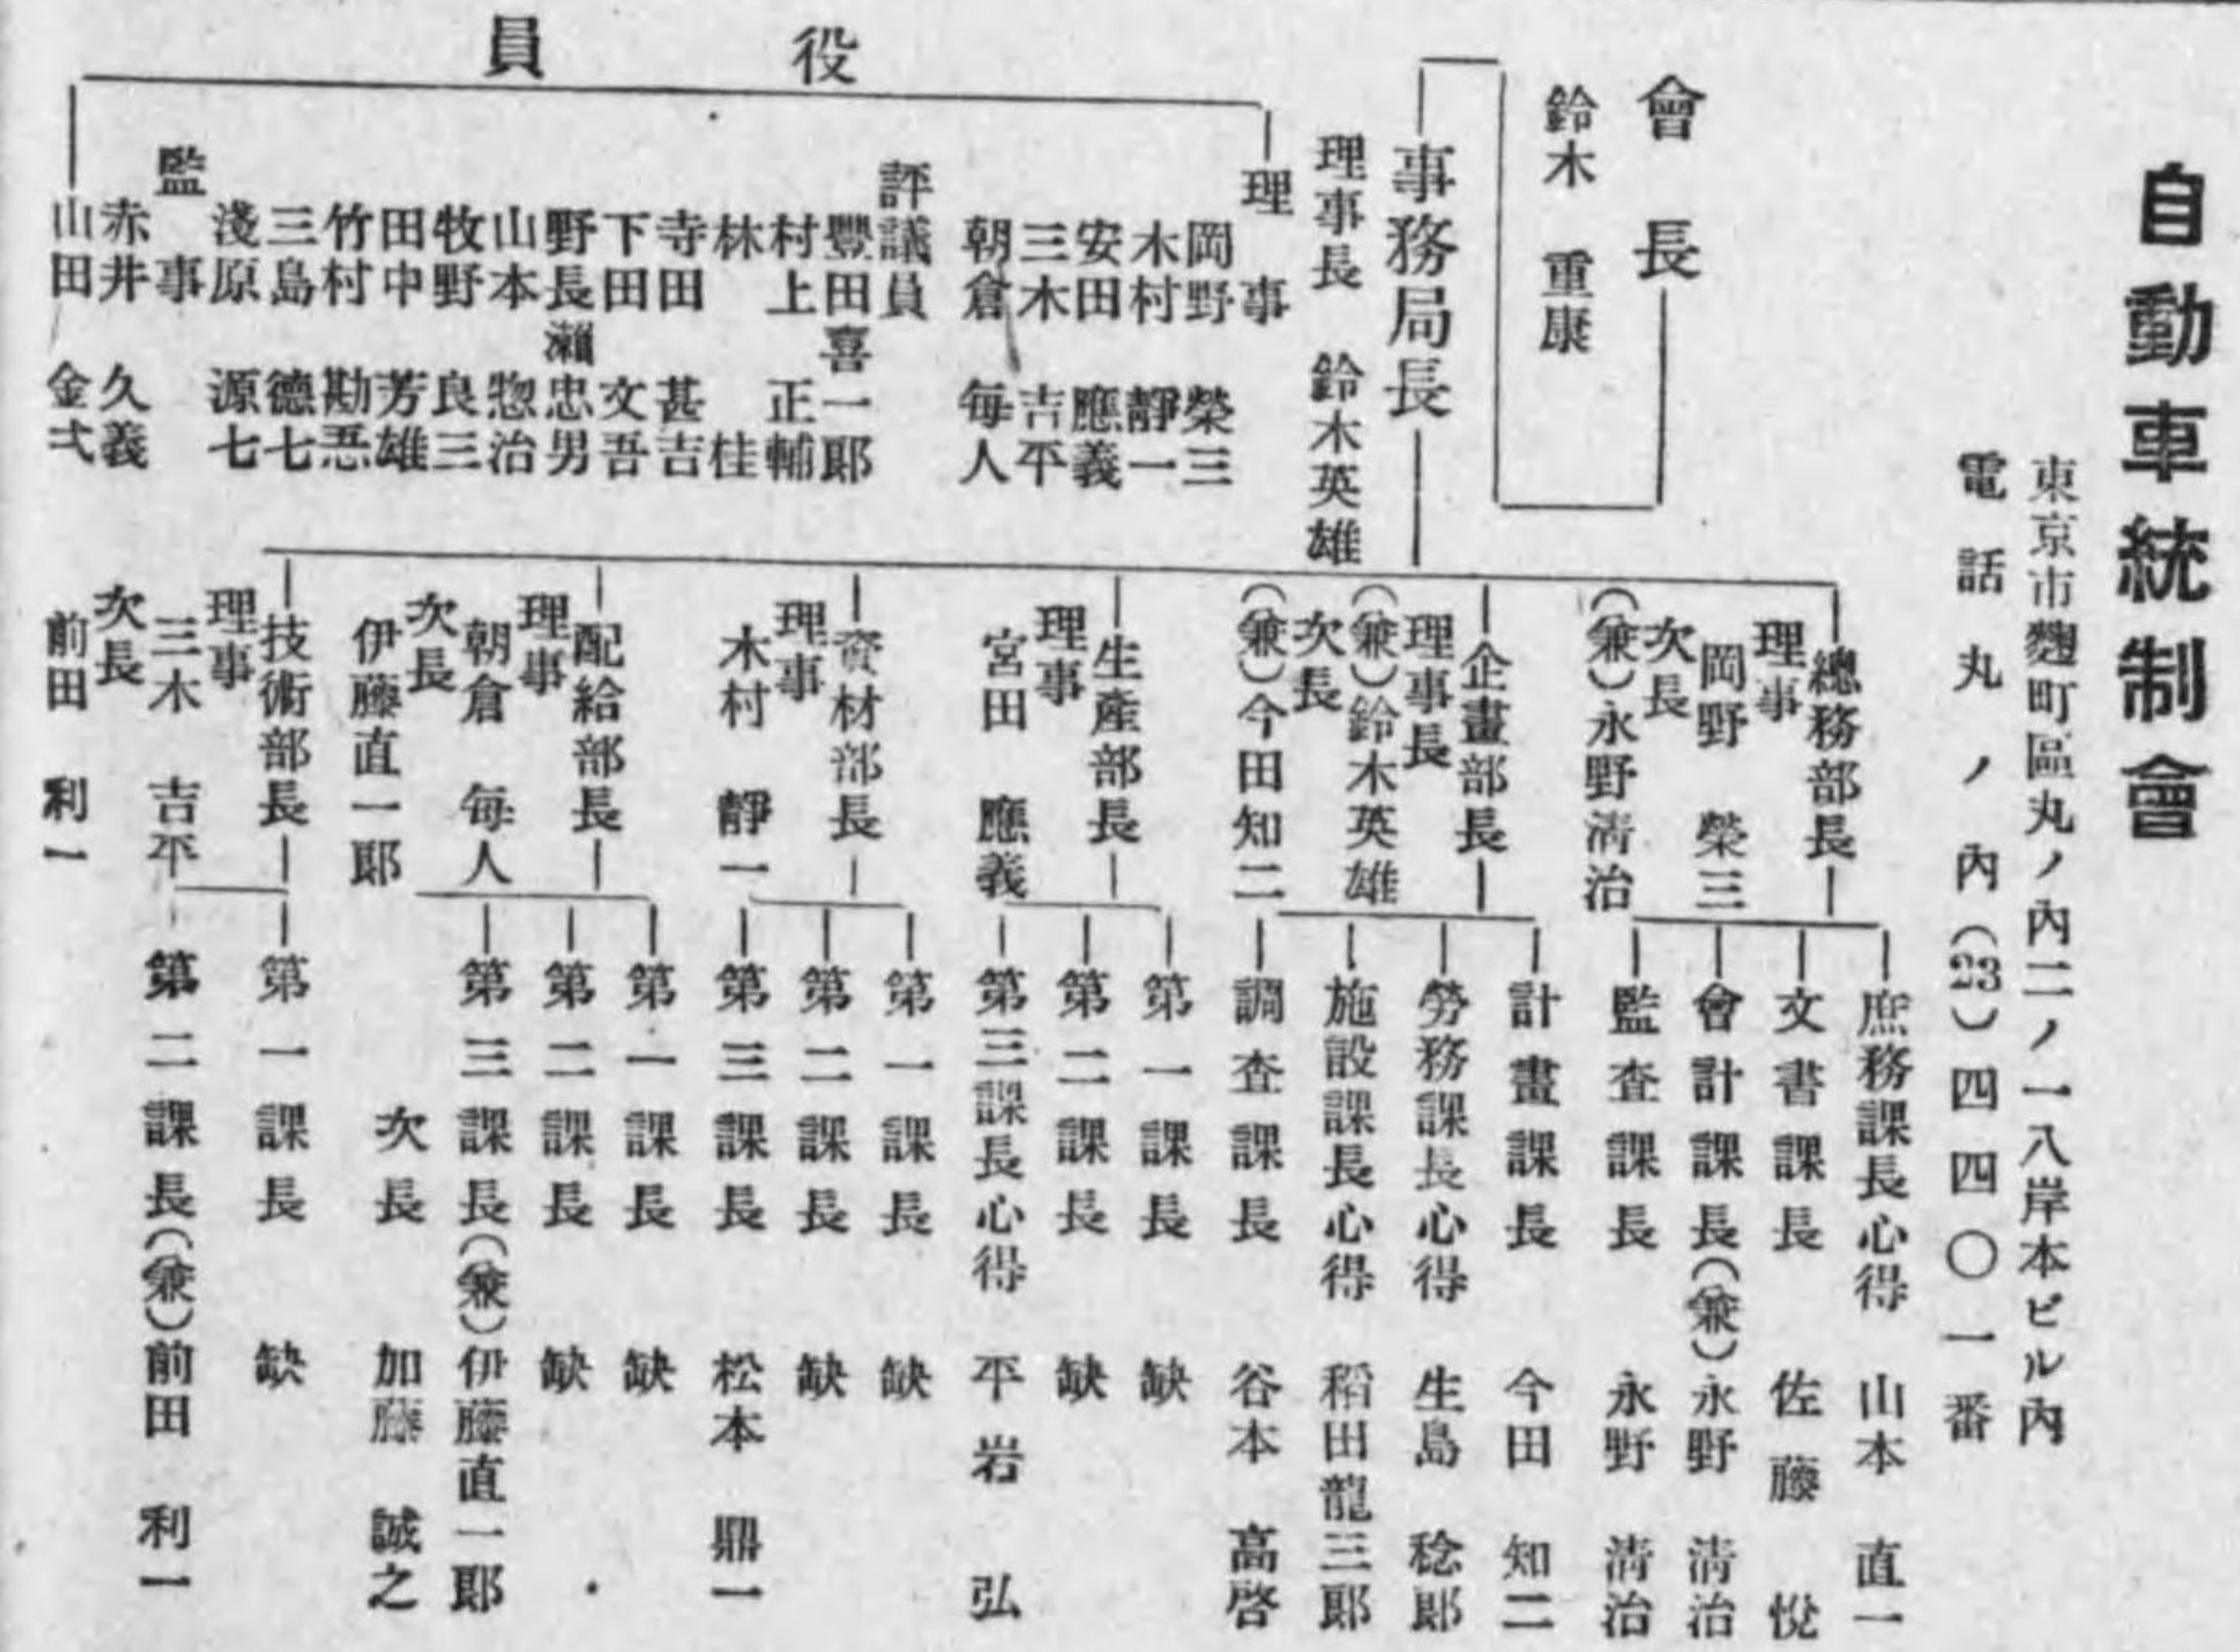 自動車統制會
東京市麴町區丸ノ內二ノ一八岸本ビル內
電話丸ノ內(23)四四〇一番
會長
鈴木 重康
事務局長
理事長 鈴木英雄
役員
理事
岡野 榮三
木村 靜一
安田 應義
三木 吉平
朝倉 每人
評議員
豐田喜一郞
村上 正輔
林 桂
寺田 甚吉
下田 文吾
野長瀨忠男
山本 惣治
牧野 良三
田中 芳雄
竹村 勘忢
三島 德七
淺原 源七
監事
赤井 久義
山田 金弌
總務部長
理事
岡野 榮三
次長
(兼)永野淸治
庶務課長心得 山本 直一
文書課長 佐藤 悅
會計課長(兼)永野 淸治
監査課長 永野 淸治
企畫部長
理事長
(兼)鈴木英雄
次長
(兼)今田知二
計畫課長 今田 知二
勞務課長心得 生島 稔郞
施設課長心得 稻田龍三郞
調査課長 谷本 高啓
生產部長
理事
宮田 應義
第一課長 缺
第二課長 缺
第三課長心得 平岩 弘
資材部長
理事
木村 靜一
第一課長 缺
第二課長 缺
第三課長 松本 鼎一
配給部長
理事
朝倉 每人
次長
伊藤直一郞
第一課長 缺
第二課長 缺
第三課長(兼)伊藤直一郞
次長 加藤 誠之
技術部長
理事
三木 吉平
次長
前田 利一
第一課長 缺
第二課長(兼)前田 利一